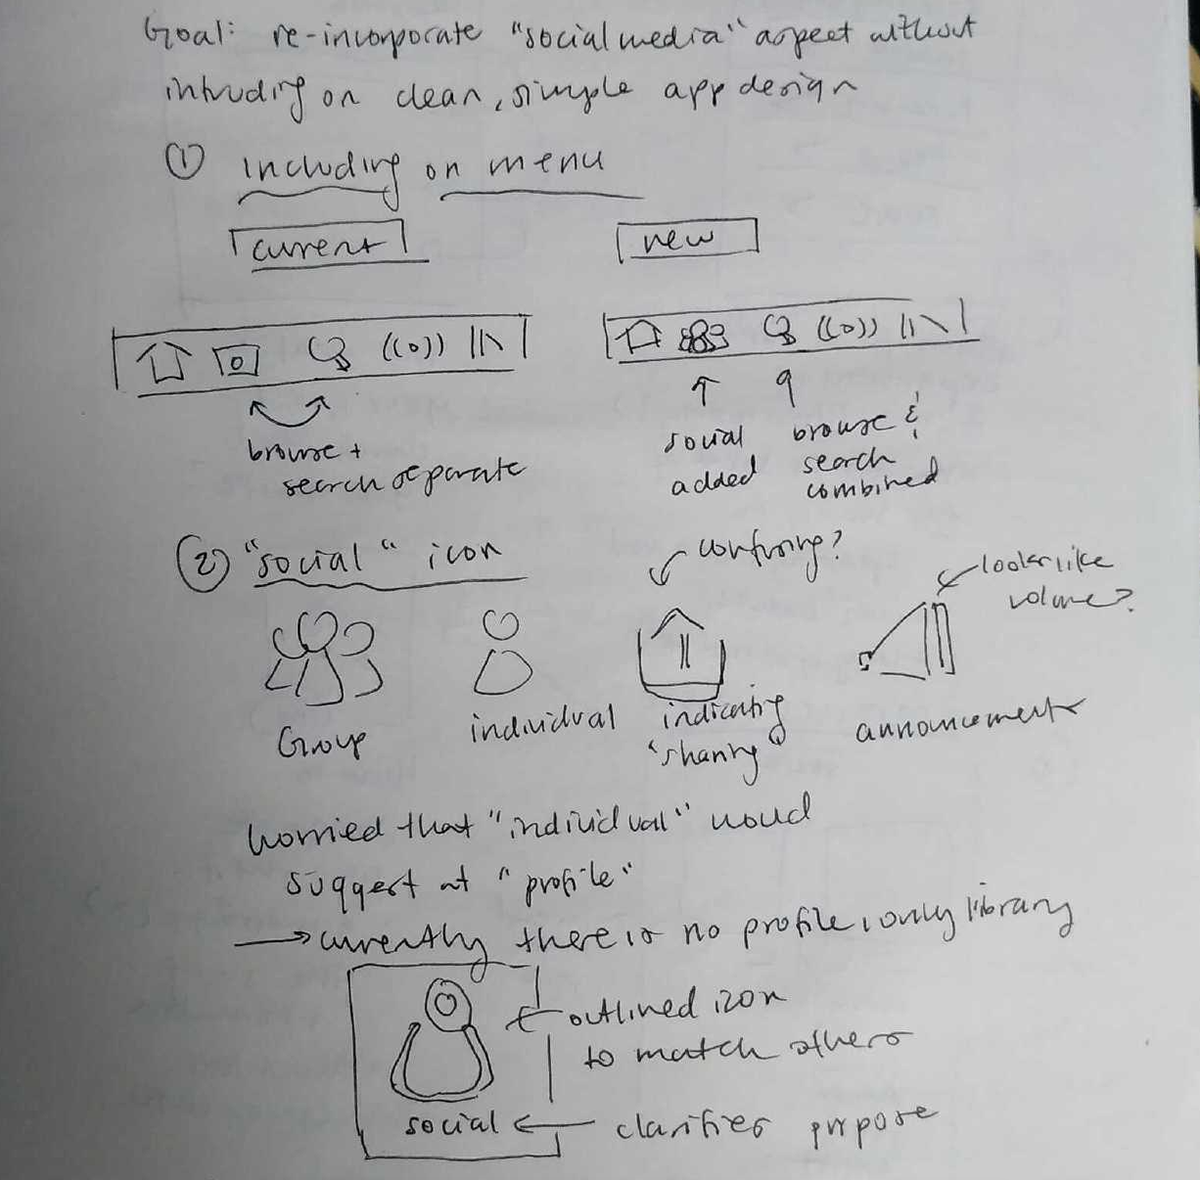 Goal: re-incorporate "social media" aspect without
intruding on clean, simple app design
① including on menu
current
new
browse +
search separate
social
added
browse &
search
combined
② "social" icon
confusing?
looks like
volume?
Group
individual
indicating
"sharing"
announcements
worried that "individual" would
suggest at "profile"
→ currently there is no profile, only library
outlined icon
to match others
social ← clarifies purpose